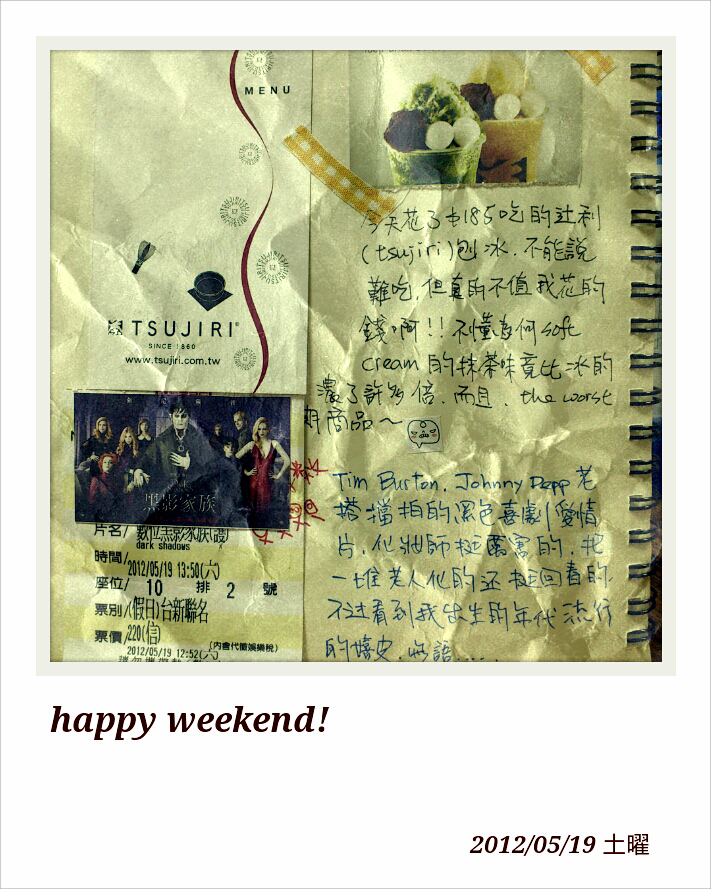 MENU
TSUJIRI
SINCE 1860
www.tsujiri.com.tw
今天花了$185吃的辻利
(tsujiri)刨冰.不能說
難吃,但真的不值我花的
錢啊!!不懂為何soft
cream 的抹茶味竟比冰的
濃了許多倍.而且.the worst
商品~
黑影家族
片名/數位黑影家族(護)
dark shadows
時間/2012/05/19 13:50(六)
座位/ 10 排 2 號
票別/(假日)台新聯名
票價/220(信)
(內含代徵娛樂稅)
2012/05/19 12:52(六)
Tim Burton, Johnny Depp 老
搭擋拍的黑色喜劇/愛情
片.化妝師挺厲害的.把
一堆老人化的还挺回春的.
不过看到我出生的年代流行
的嬉皮.無語.....
happy weekend!
2012/05/19 土曜